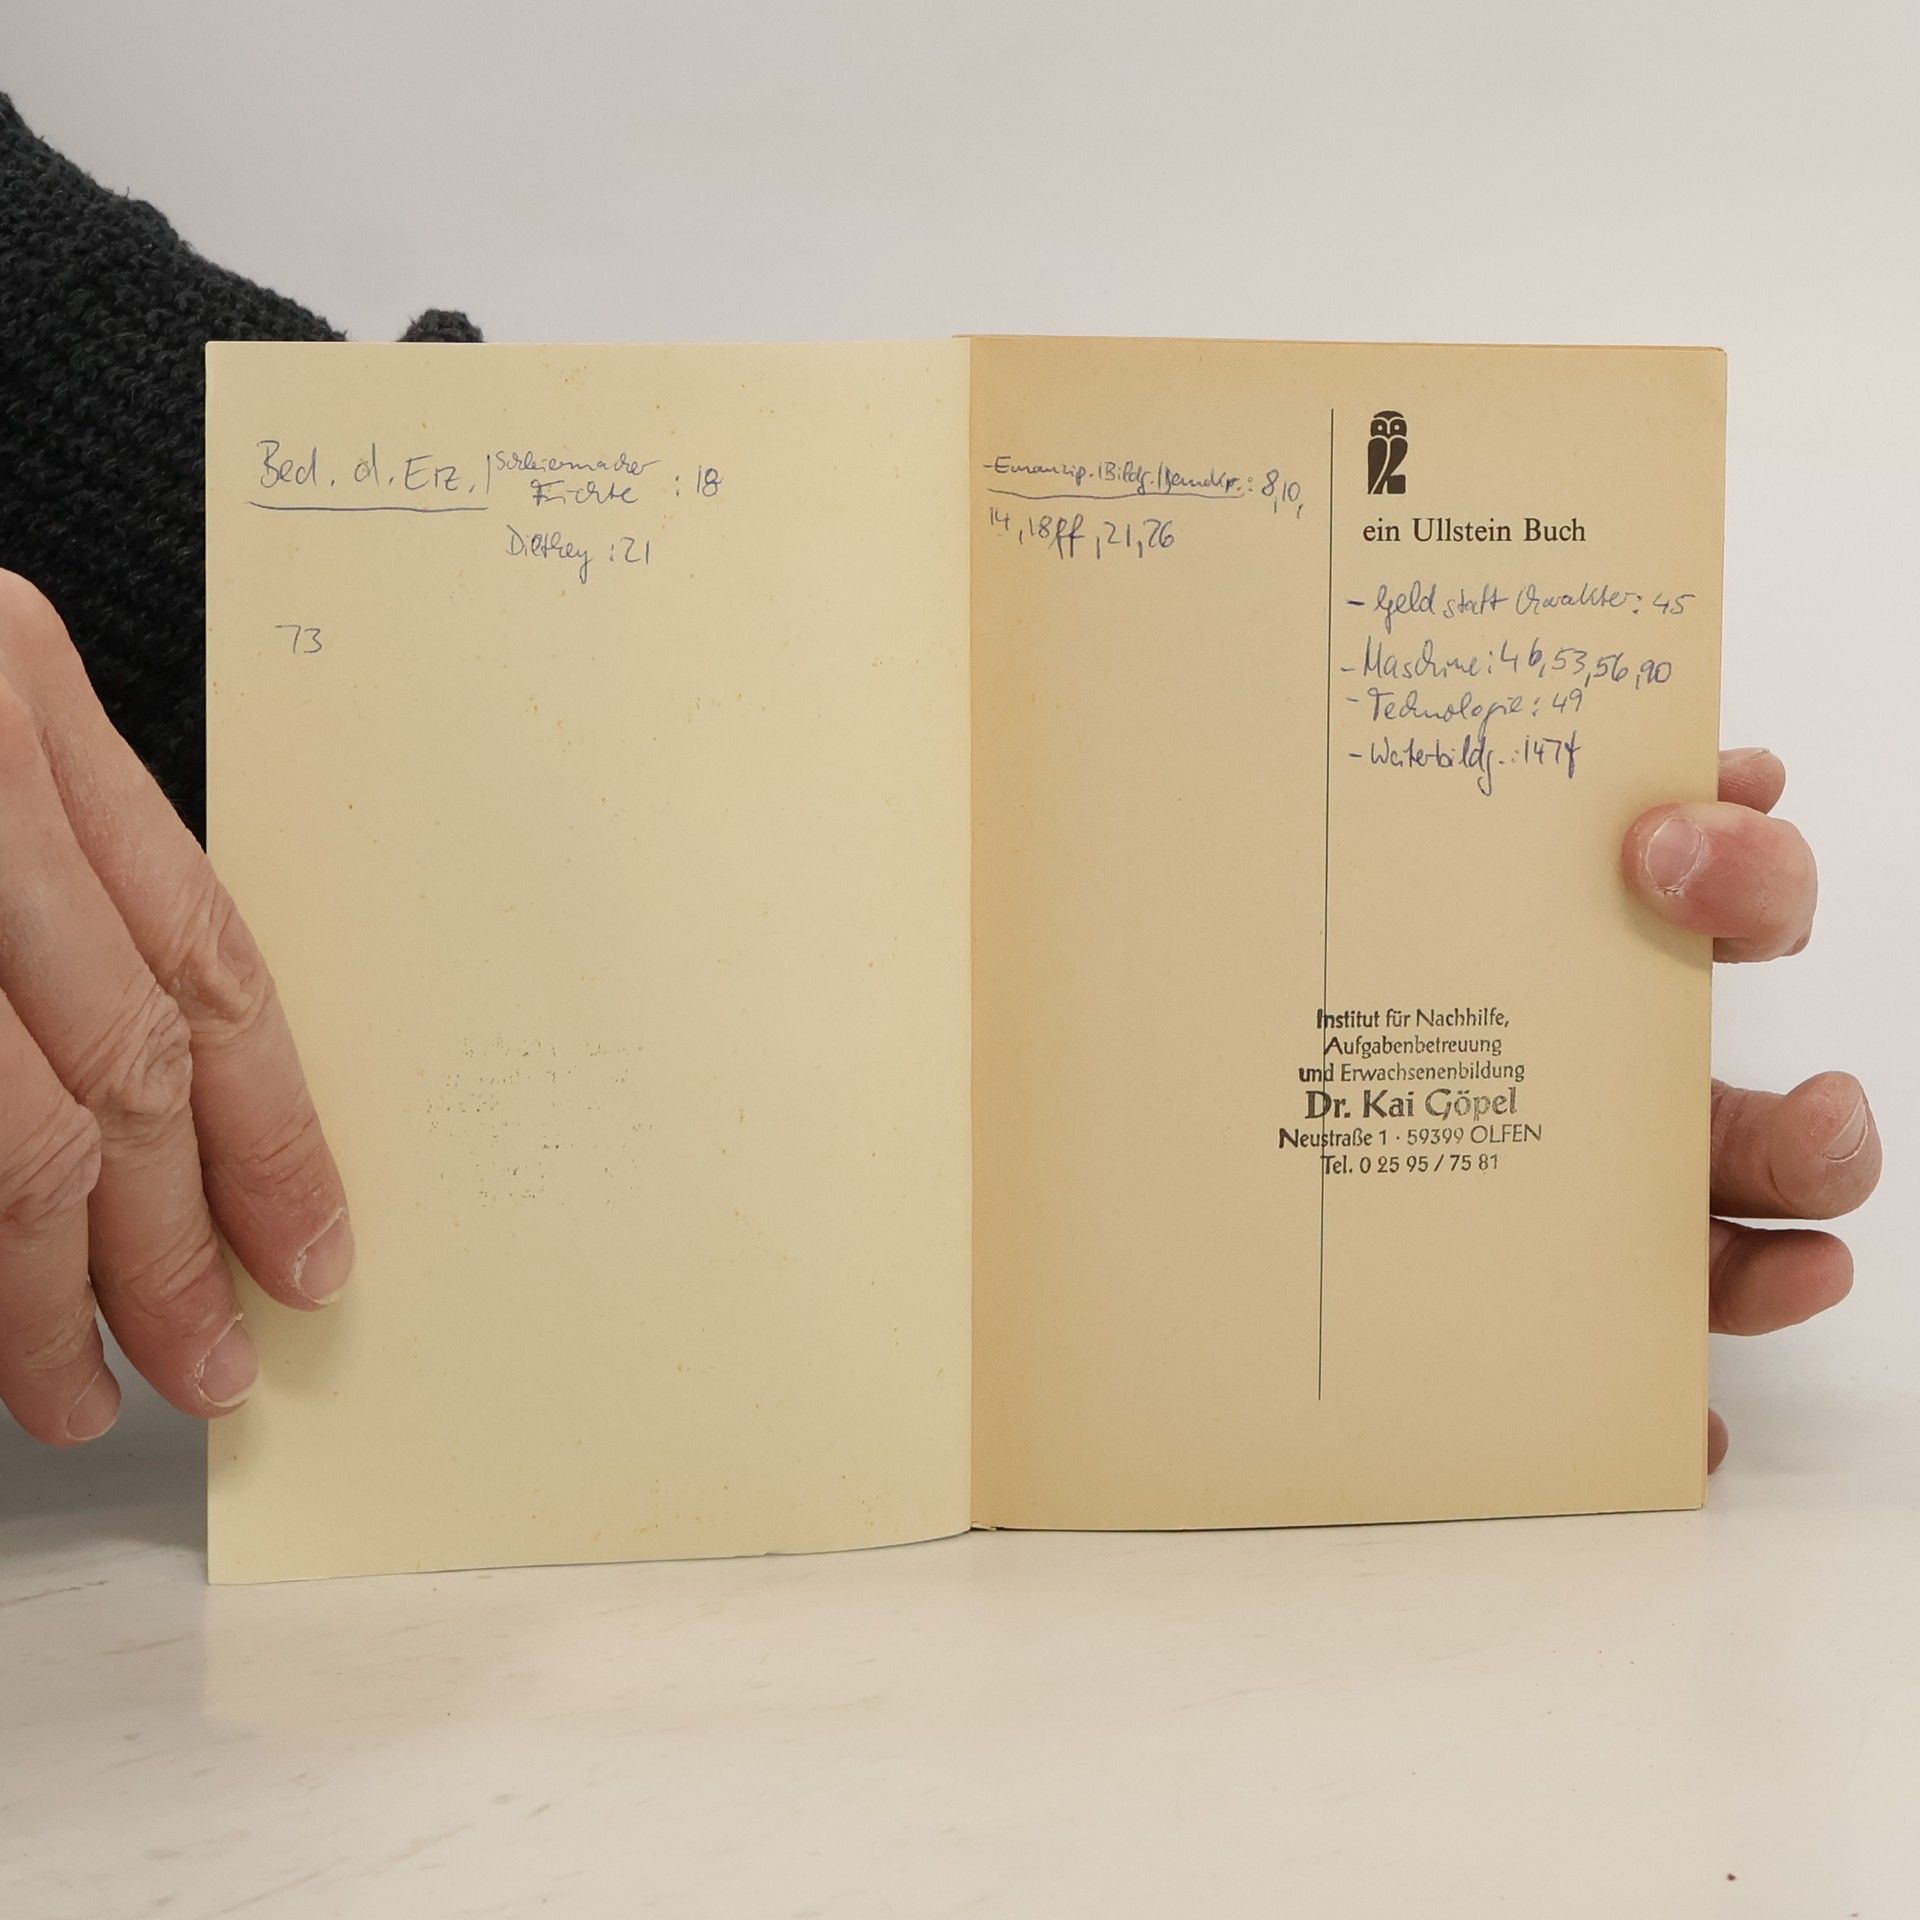 Bed. d. Erz. | Schleiermacher
Fichte : 18
Dilthey : 21
73
- Emanzip./Bildg./Demokr.: 8, 10,
14, 18ff, 21, 26
ein Ullstein Buch
- Geld statt Charakter: 45
- Maschine: 46, 53, 56, 90
- Technologie: 49
- Weiterbildg.: 147f
Institut für Nachhilfe,
Aufgabenbetreuung
und Erwachsenenbildung
Dr. Kai Göpel
Neustraße 1 · 59399 OLFEN
Tel. 0 25 95 / 75 81